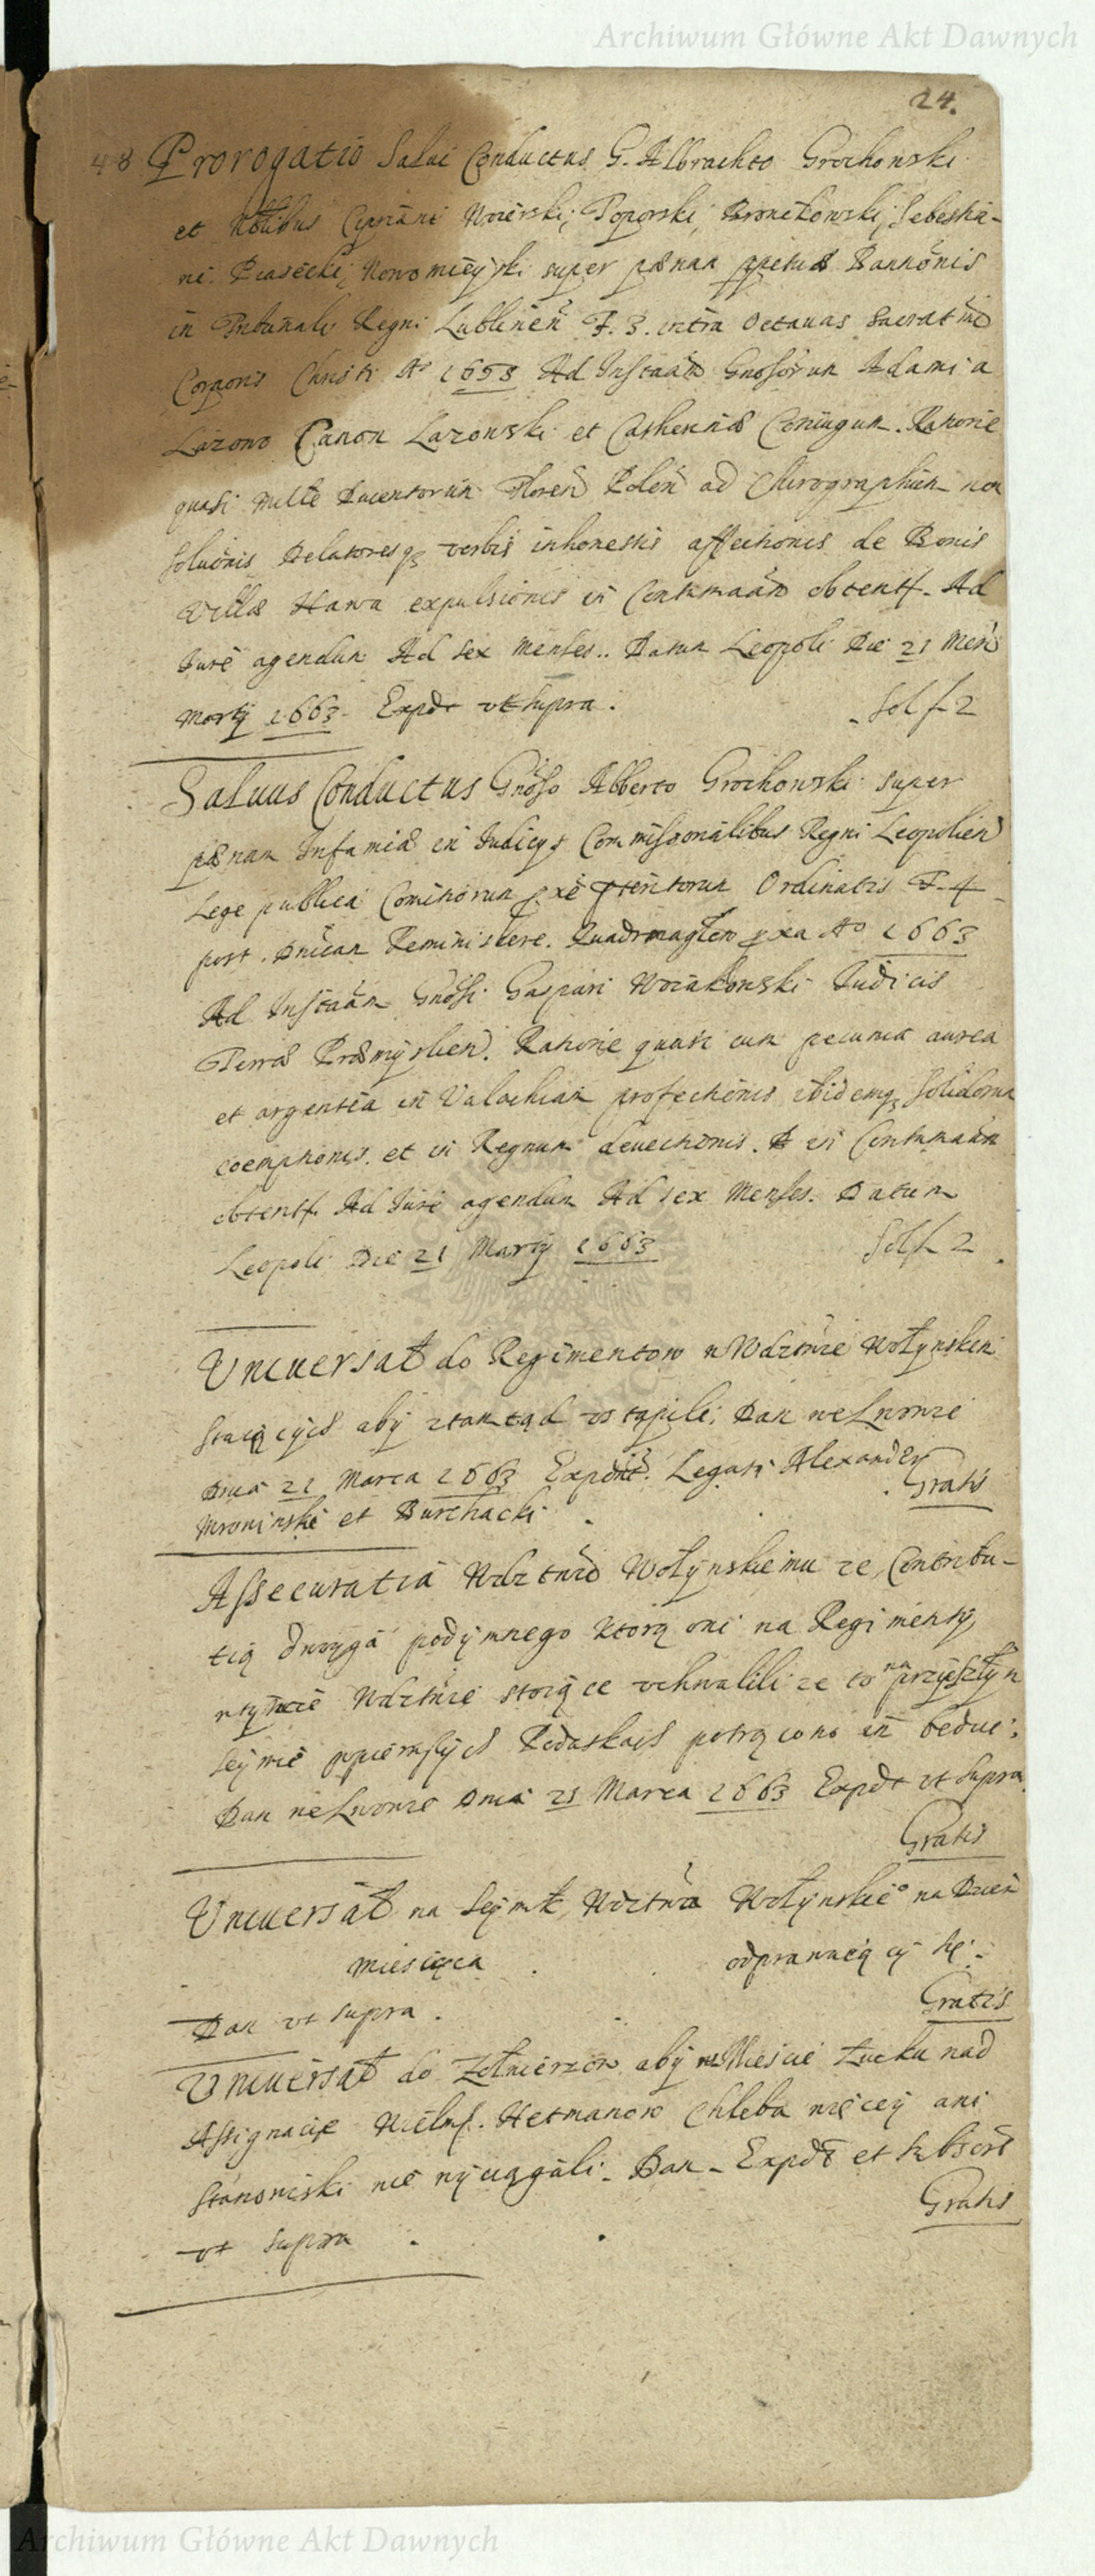 Archiwum Główne Akt Dawnych
24.
48 Prorogatio Salui Conductus G. Albrachto Grochowski
et Nobilibus Cipriani Poporski, Bronikowski, Sebestia-
ni Piasecki, Nowomieyski super pænam Bannonis
in Tribunali Regni Lublinen F. 3. intra Octauas Sacratme
Corporis Christi Ao 1658 Ad Instaan Gnosorum Adami a
Lazowo Canon Lazowski et Catherinæ Coniugum. Rationie
quasi Mille Ducentorum Floren Polen ad Chirographum non
soluonis verbis inhonestis affectionis de Bonis
Villæ Hawa expulsionis in Contumaan obtent. Ad
Jure agendum Ad sex Menses. Datum Leopoli Die 21 Mens
Martij 1663. Expdt vt supra. Sol f 2
Saluus Conductus Gnoso Alberto Grochowski super
pænam Infamiæ in Iudicijs Commissionalibus Regni Leopolien
Lege publica Comitiorum Ordinatis F. 4
post. Dnicam Reminiscere. pxa Ao 1663
Ad Instaan Gnosi Gaspari Judicis
Terræ Præmyslien. Rationie quasi cum pecunia aurea
et argentea in Valachiam profectionis ibidemq solidorum
coemptionis et in Regnum deuectionis. in Contumaan
obtent. Ad Jure agendum Ad sex Menses. Datum
Leopoli Die 21 Martij 1663 Sol f 2
Vniuersał do Regimentow w Wdztwie Wołynskim
stoiących aby ztamtąd vstąpili. Dan we Lwowie
Dnia 21 Marca 1663 Legati Alexander
Wroninski et Burchacki Gratis
Assecuratia Wdztwu Wołynskiemu ze Contribu-
tią dwoyga podymnego ktorą oni na Regimenty
w tymze Wdztwie stoiące vchwalili ze to na przyszłym
Seymie potrącono im bedzie.
Dan we Lwowie Dnia 21 Marca 1663 Expdt vt supra
Gratis
Vniuersał na Seymk Wdztwa Wołynskieo na Dzien
miesiąca odprawuiący się.
Dan vt supra. Gratis
Vniuersał do Zołnierzow aby w Miescie Łucku nad
Assignacije Wielm. Hetmanow Chleba więcey ani
Stanowiski nie wyciągali. Dan. Expdt et sbscrt
vt supra Gratis
Archiwum Główne Akt Dawnych